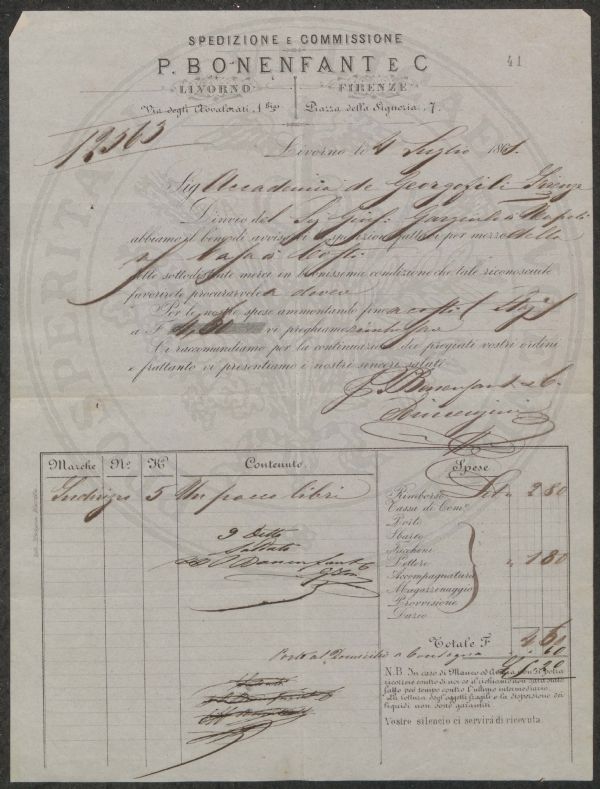 SPEDIZIONE E COMMISSIONE
P. BONENFANT E C
41
LIVORNO FIRENZE
Via degli Avvalorati, 1 bis Piazza della Signoria, 7.
12563
Livorno li 4 Luglio 186
Sig Accademia de Georgofili Firenze
D'invio del Sig Gargiulo di Napoli
abbiamo il bene di avvisarvi spedizione fattavi per mezzo della
delle sottodestinate merci in buonissima condizione che tale riconosciute
favorirete procurarvele a dovere
Per le nostre spese ammontando fino a costì
a F 4,60 vi preghiamo
Vi raccomandiamo per la continuazione dei pregiati vostri ordini
e frattanto vi presentiamo i nostri sinceri saluti
P. Bonenfant e C.
Marche N.º K Contenuto. Spese.
Indirizzo 5 Un pacco libri
Rimborso 2 80
Tassa di Com.e
Porto
Sbarco
Facchini
Lettere
" 1 80
Accompagnatura
Magazzinaggio
Provvisione
Dazio
9 Detto
Saldato
P Bonenfant C
Totale F. 4 60
Porto al Domicilio e Consegna 60
5.20
N.B. In caso di Manco ed Avaria non si potrà
ricorrere contro di noi se il richiamo non sarà stato
fatto per tempo contro l'ultimo intermediario,
alla rottura degl'oggetti fragili e la dispersione dei
liquidi non sono garantiti.
Vostro silenzio ci servirà di ricevuta.